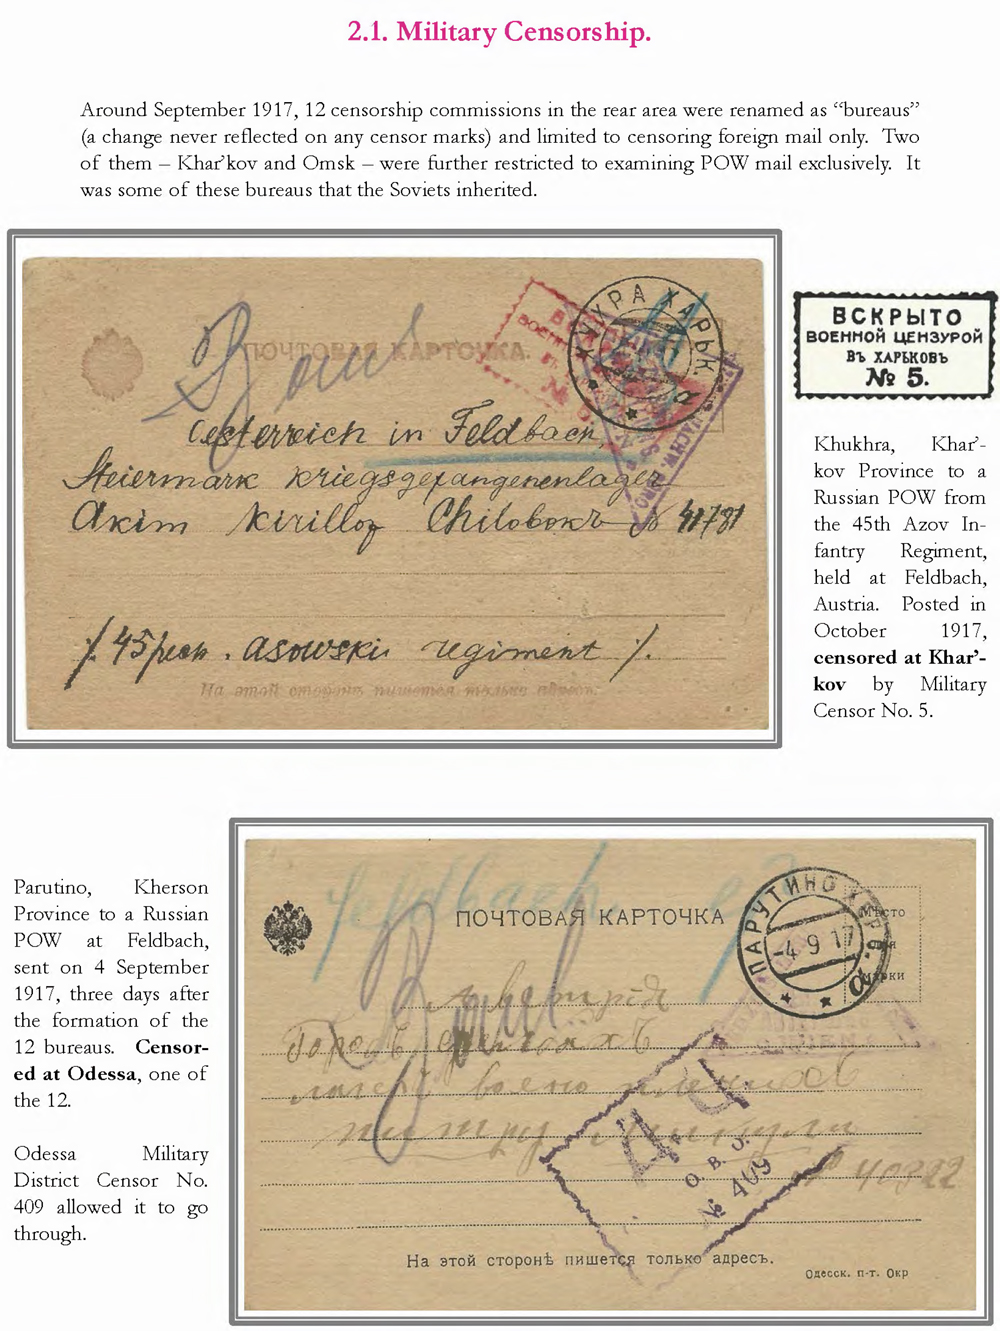 2.1. Military Censorship.
Around September 1917, 12 censorship commissions in the rear area were renamed as “bureaus”
(a change never reflected on any censor marks) and limited to censoring foreign mail only. Two
of them – Khar’kov and Omsk – were further restricted to examining POW mail exclusively. It
was some of these bureaus that the Soviets inherited.
ПОЧТОВАЯ КАРТОЧКА.
КУХРА ХАРЬК.
Oesterreich in Feldbach,
Steiermark Kriegsgefangenenlager
Akim Kirillof Chilobokъ № 41781
/. 45 . asowski regiment /.
На этой сторонѣ пишется только адресъ.
ВСКРЫТО
ВОЕННОЙ ЦЕНЗУРОЙ
ВЪ ХАРЬКОВѢ
№ 5.
Khukhra, Khar’-
kov Province to a
Russian POW from
the 45th Azov In-
fantry Regiment,
held at Feldbach,
Austria. Posted in
October 1917,
censored at Khar’-
kov by Military
Censor No. 5.
Parutino, Kherson
Province to a Russian
POW at Feldbach,
sent on 4 September
1917, three days after
the formation of the
12 bureaus. Censor-
ed at Odessa, one of
the 12.
Odessa Military
District Censor No.
409 allowed it to go
through.
Feldbach
ПОЧТОВАЯ КАРТОЧКА
ПАРУТИНО ХЕРС.
-4 9 17
а
Мѣсто
для
марки
Д. Ц.
О. В. О.
№ 409
№ 40322
На этой сторонѣ пишется только адресъ.
Одесск. п-т. Окр